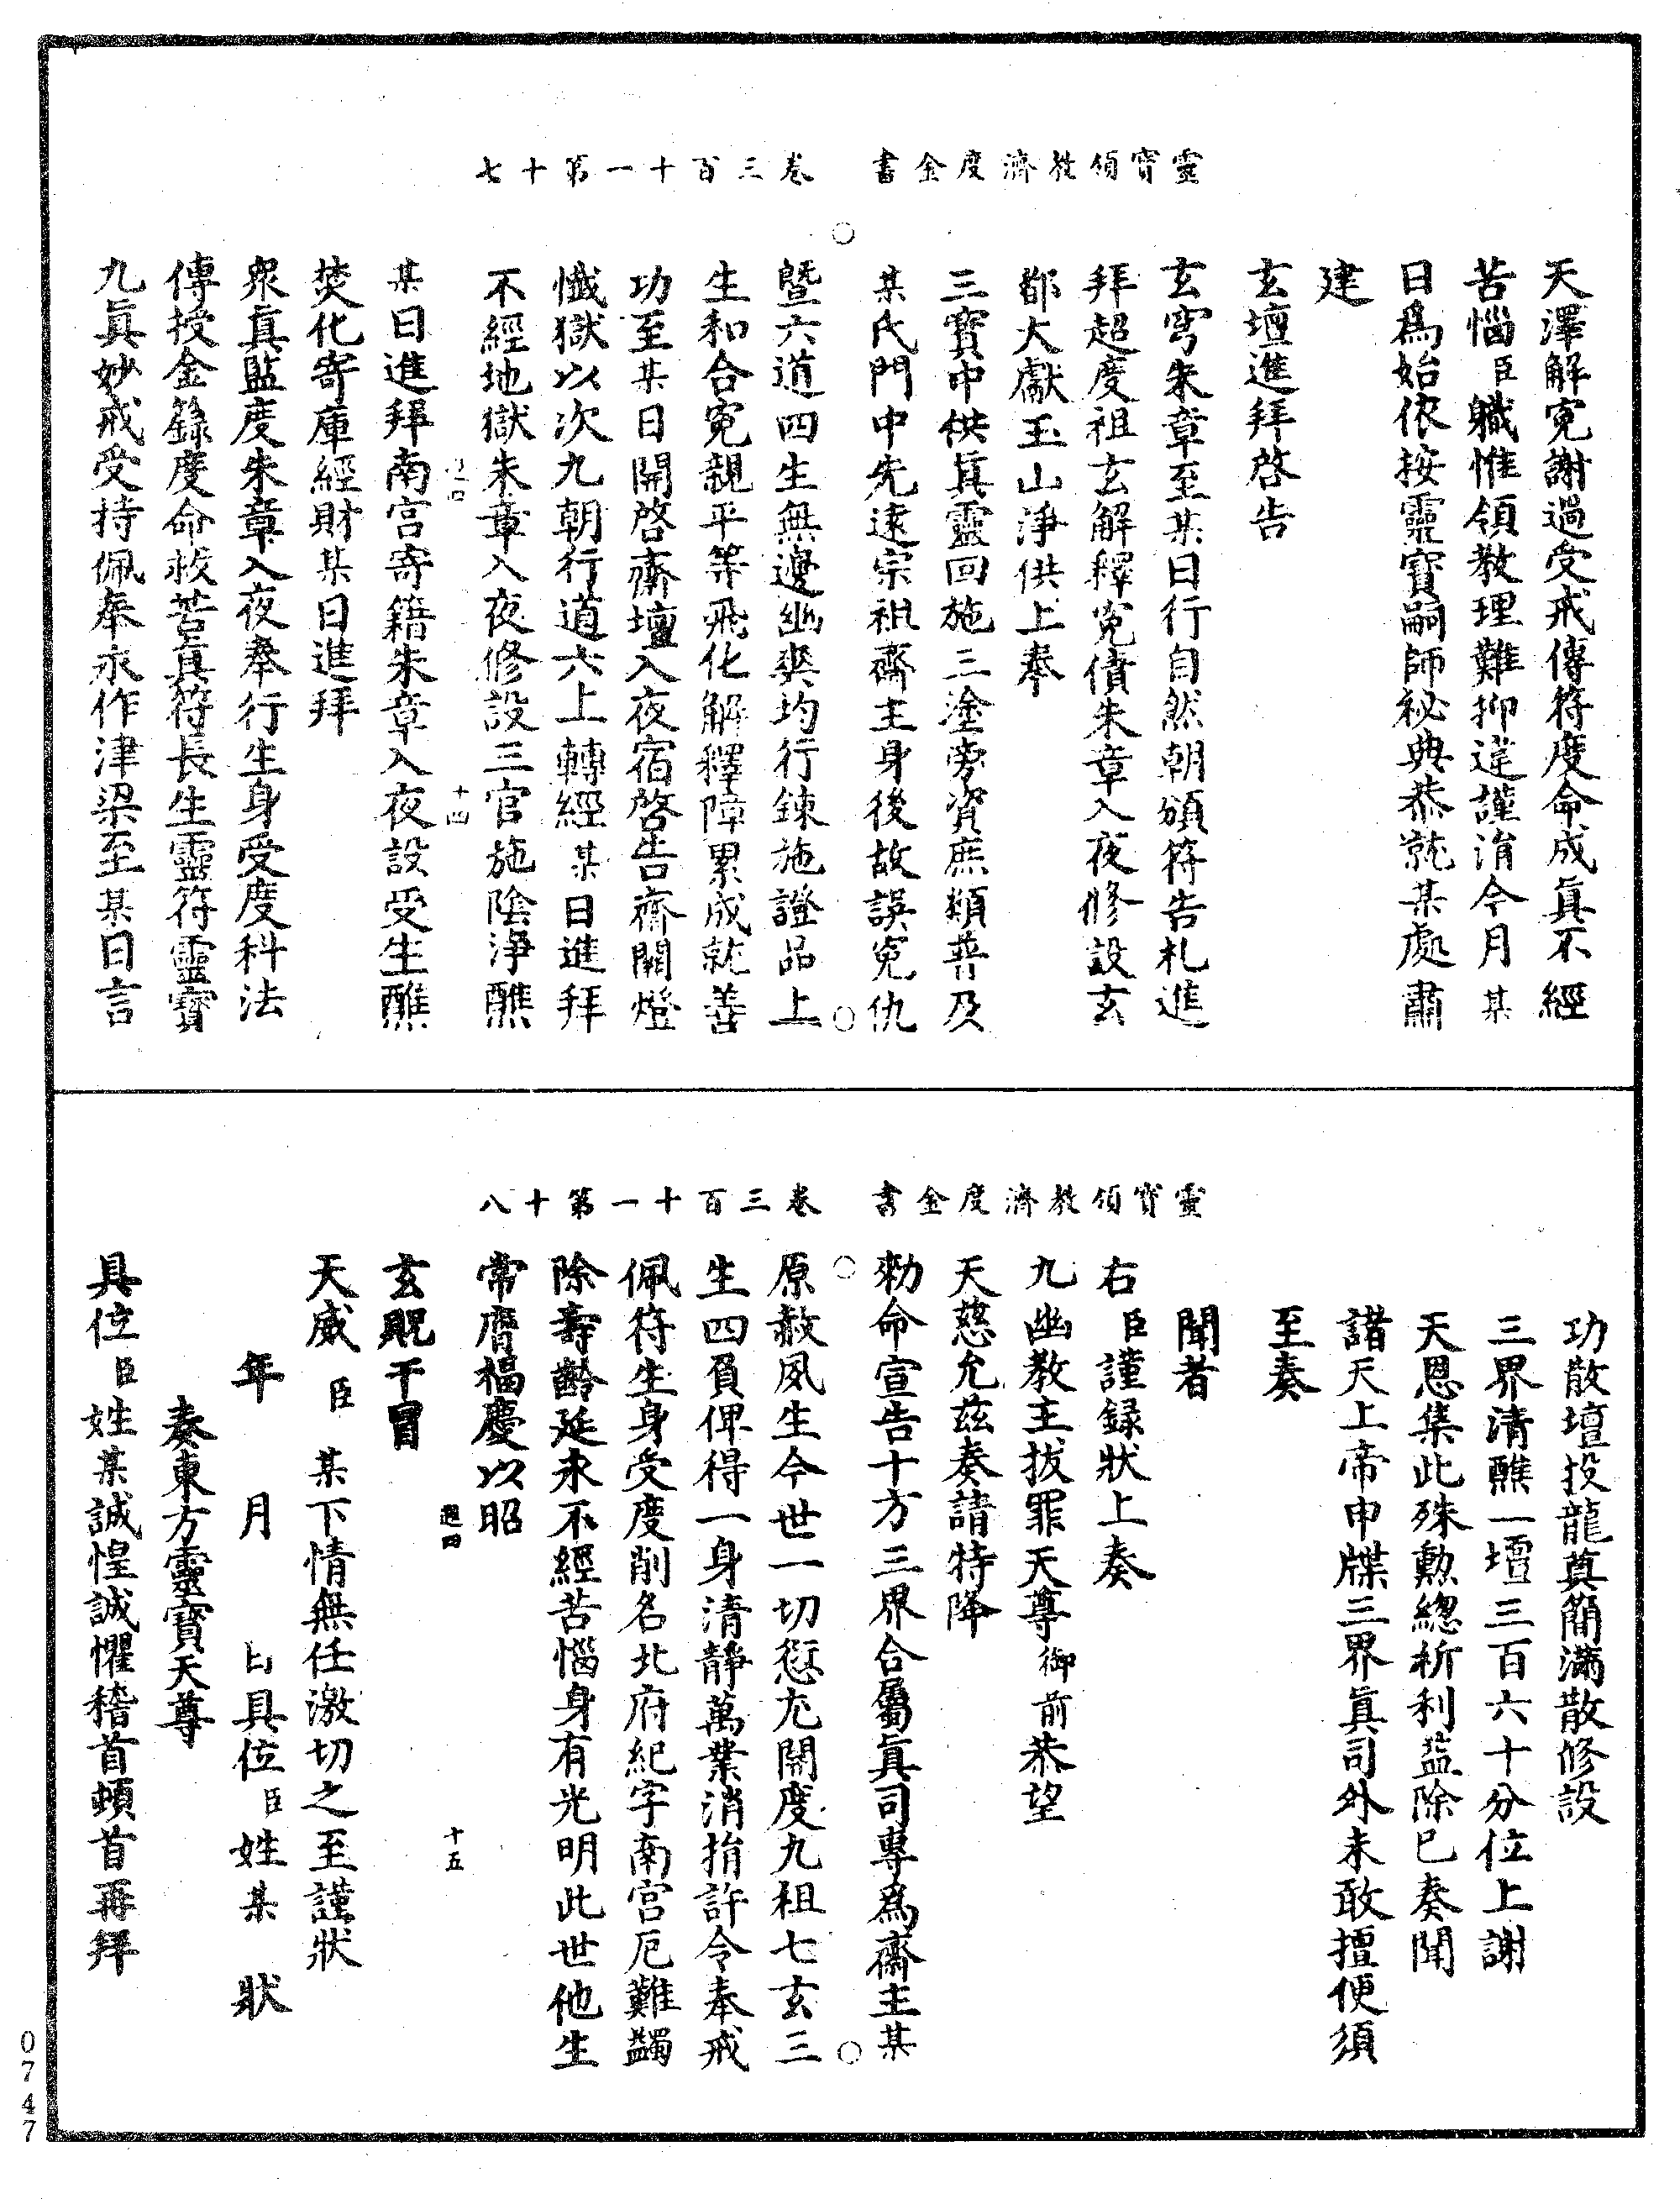 靈寶領教濟度金書 卷三百一十第十七
天澤解冤謝過受戒傳符度命成眞不經
苦惱臣職惟領教理難抑違謹涓今月某
日爲始依按靈寶嗣師祕典恭就某處肅
建
玄壇進拜啓告
玄穹朱章至某日行自然朝頒符告札進
拜超度祖玄解釋冤債朱章入夜修設玄
都大獻玉山淨供上奉
三寶中供眞靈回施三塗旁資庶類普及
某氏門中先遠宗祖齋主身後故誤冤仇
曁六道四生無邊幽爽均行鍊施證品上
生和合冤親平等飛化解釋障累成就善
功至某日開啓齋壇入夜宿啓告齋關燈
懺獄以次九朝行道六上轉經某日進拜
不經地獄朱章入夜修設三官施陰淨醮
某日進拜南宮寄籍朱章入夜設受生醮
十四
焚化寄庫經財某日進拜
衆眞監度朱章入夜奉行生身受度科法
傳授金籙度命救苦眞符長生靈符靈寶
九眞妙戒受持佩奉永作津梁至某日言
靈寶領教濟度金書 卷三百一十第十八
功散壇投龍奠簡滿散修設
三界清醮一壇三百六十分位上謝
天恩集此殊勳緫祈利益除已奏聞
諸天上帝申牒三界眞司外未敢擅便須
至奏
聞者
右臣謹録狀上奏
九幽教主拔罪天尊御前恭望
天慈允茲奏請特降
勑命宣告十方三界合屬眞司專爲齋主某
原赦夙生今世一切愆尤開度九祖七玄三
生四負俾得一身清靜萬業消捐許令奉戒
佩符生身受度削名北府紀字南宮厄難蠲
除壽齡延永不經苦惱身有光明此世他生
常膺福慶以昭
玄貺干冒
週四 十五
天威臣某下情無任激切之至謹狀
年 月 日具位臣姓某 狀
奏東方靈寶天尊
具位臣姓某誠惶誠懼稽首頓首再拜
0747